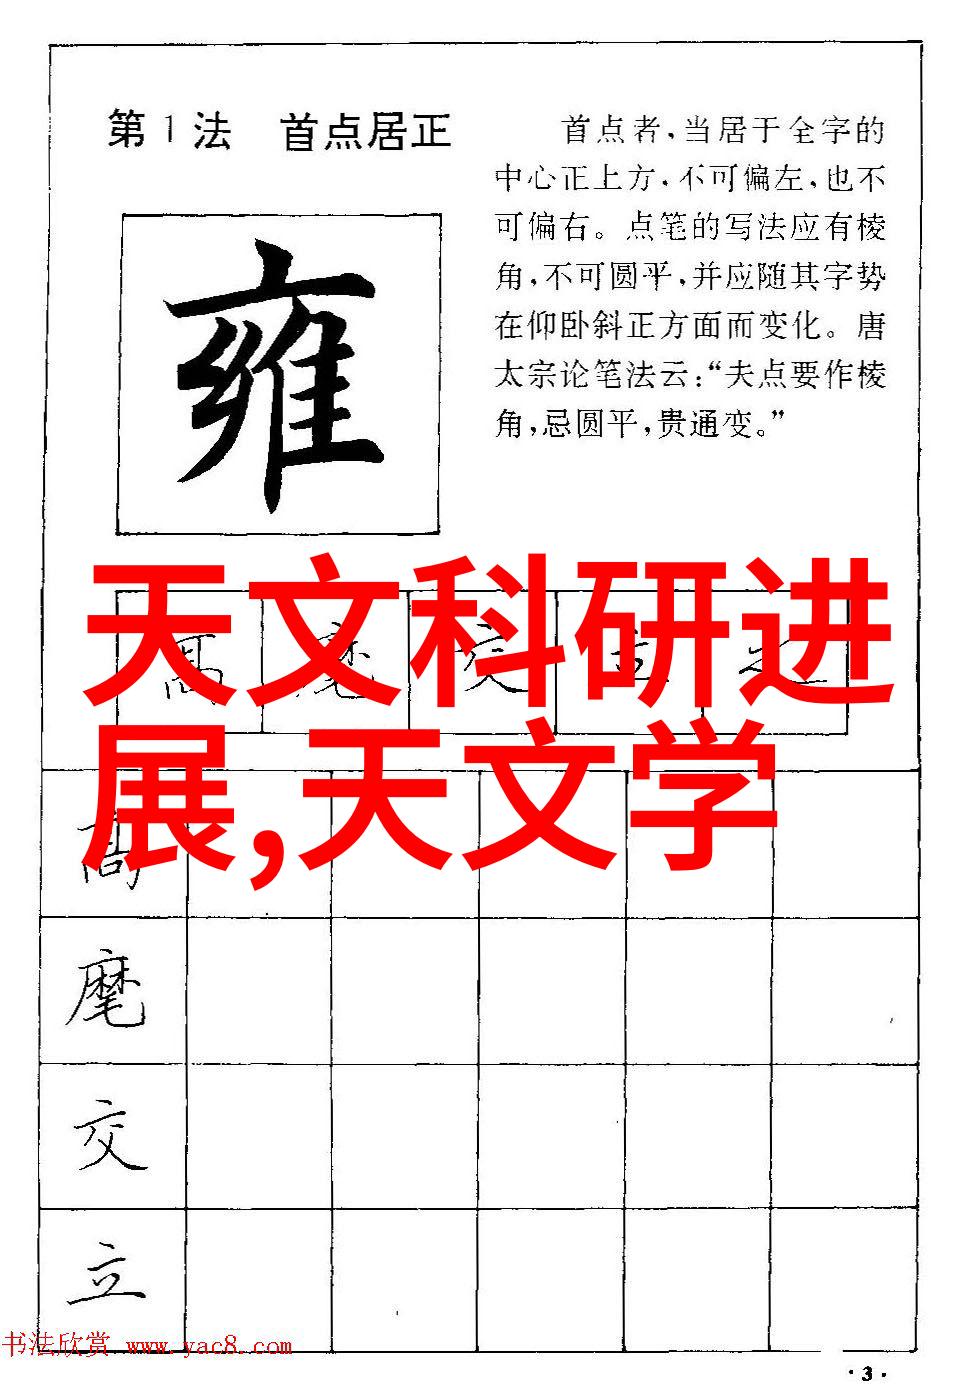 第1法 首点居正
首点者,当居于全字的
中心正上方,不可偏左,也不
可偏右。点笔的写法应有棱
角,不可圆平,并应随其字势
在仰卧斜正方面而变化。唐
太宗论笔法云:“夫点要作棱
角,忌圆平,贵通变。”
雍
天文科研进
展,天文学
高 麾 交 立 之
高
麾
交
立
书法欣赏 www.yac8.com
·3·